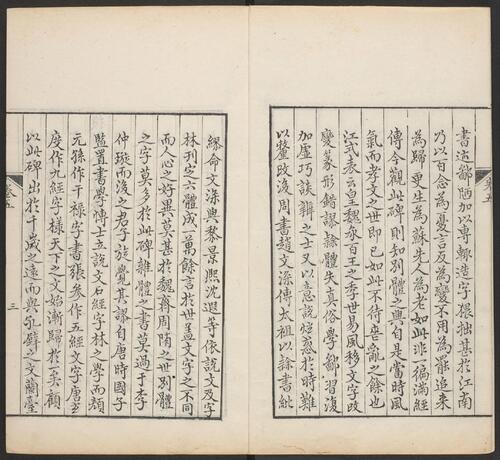 卷五
書迹鄙陋加以專輒造字猥拙甚於江南
乃以百念為憂言反為變不用為罷追來
為歸更生為蘇先人為老如此非一徧滿經
傳今觀此碑則知別體之興自是當時風
氣而孝文之世即已如此不待喪亂之餘也
江式表云皇魏承百王之季世易風移文字改
變篆形錯謬隸體失真俗學鄙習復
加虛巧談辯之士又以意說炫惑於時難
以釐改後周書趙文深傳太祖以隸書紕
繆命文深與黎景熙沈遐等依說文及字
林刊定六體成一萬餘言行於世蓋文字之不同
而人心之好異莫甚於魏齊周隋之世別體
之字莫多於此碑雜體之書莫過于李
仲璇而後之君子旋覺其謬自唐時國子
監置書學博士立說文石經字林之學而顏
元孫作干祿字書張參作五經文字唐玄
度作九經字樣天下之文始漸歸於一矣顧
以此碑出於千歲之遠而與孔壁之文蘭臺
卷五
三